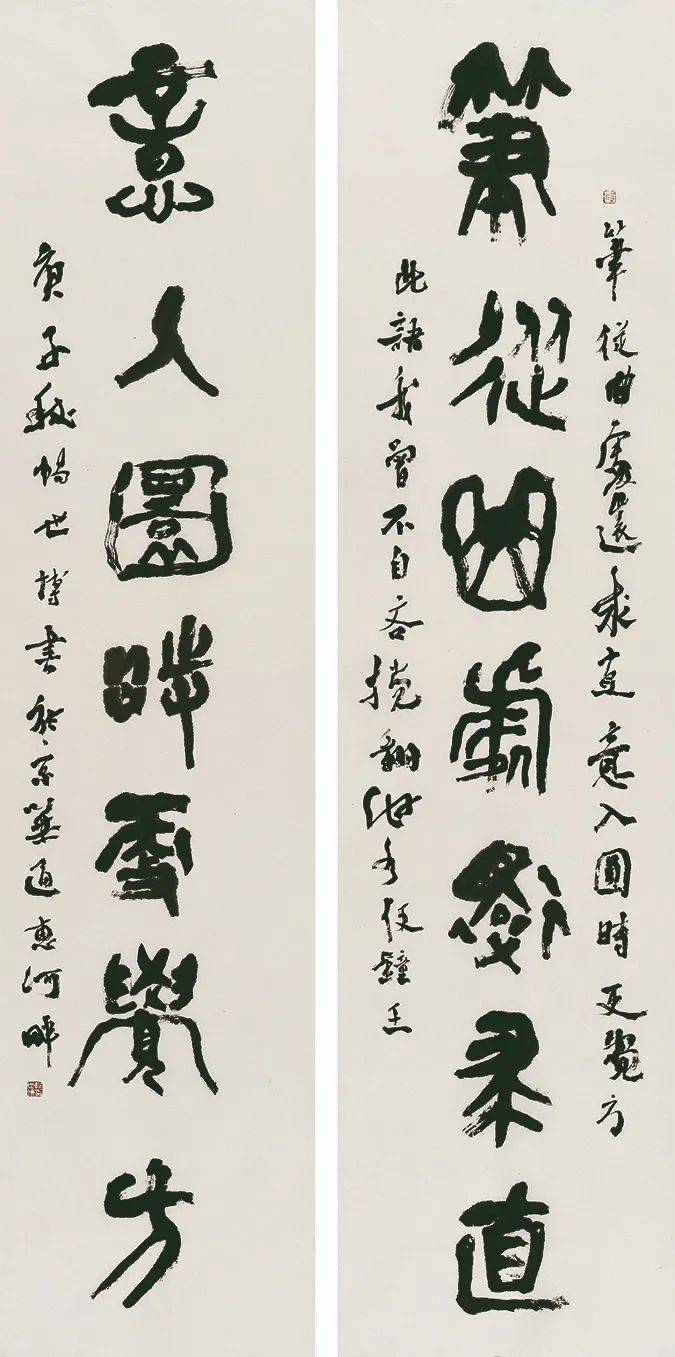 筆從曲處還求直意入圓時更覺方
筆從曲處還求直
此語我曾不自吝攪翻池水便鐘王
意入圓時更覺方
庚子秋世博書於京華通惠河畔